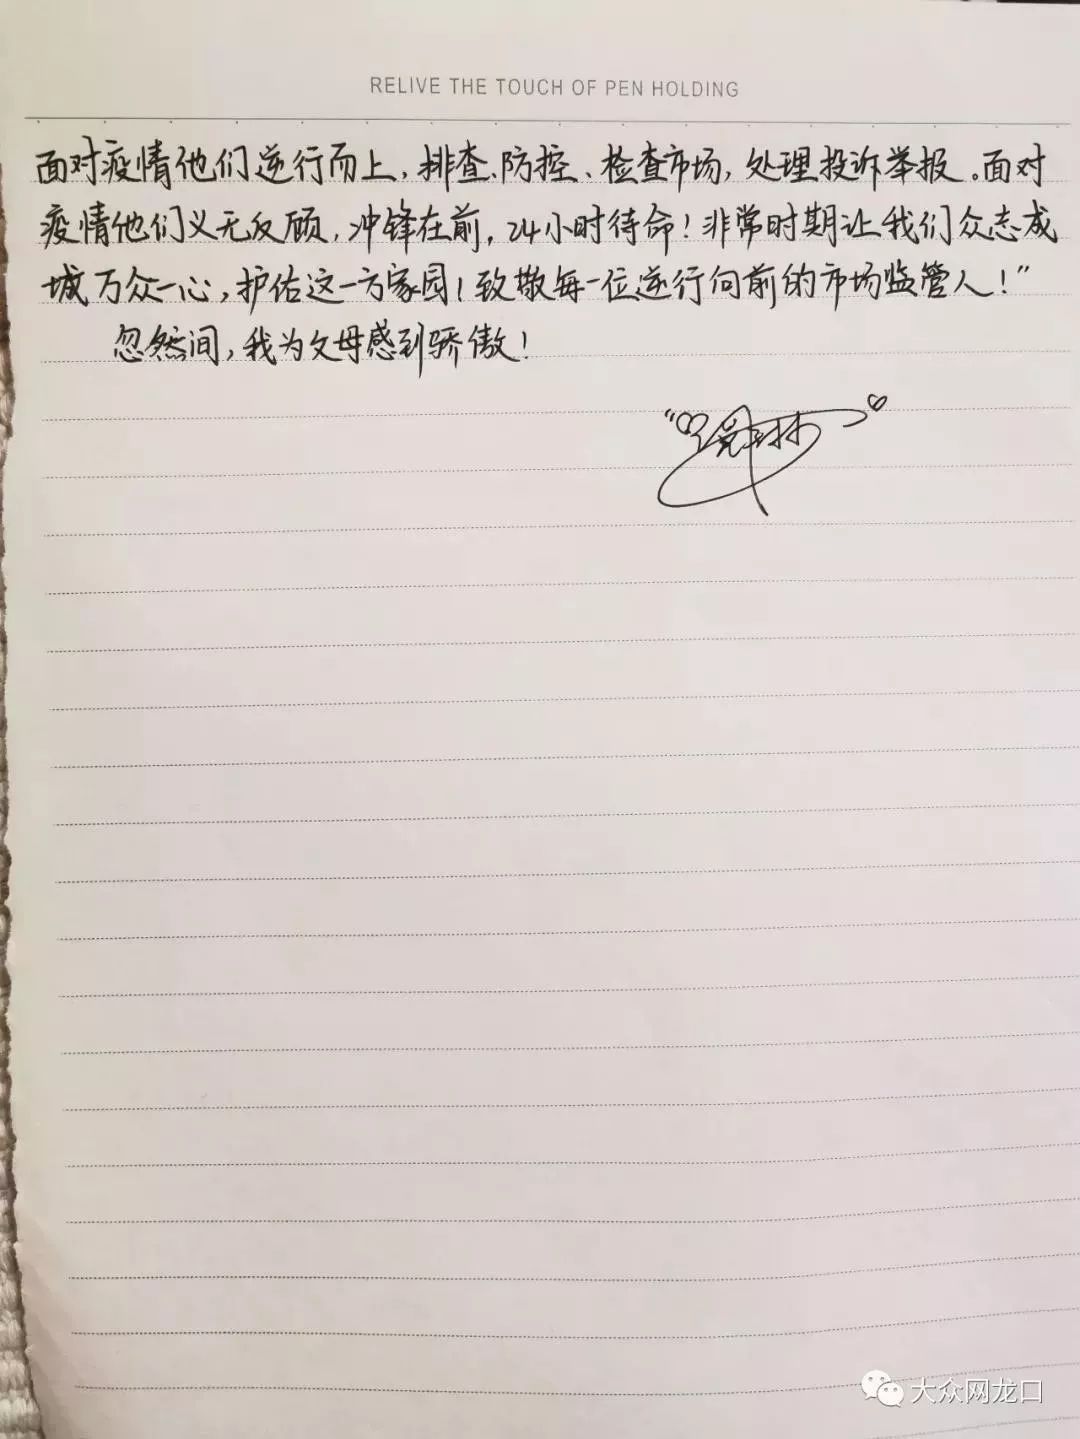 RELIVE THE TOUCH OF PEN HOLDING
面对疫情他们逆行而上，排查、防控、检查市场，处理投诉举报。面对
疫情他们义无反顾，冲锋在前，24小时待命！非常时期让我们众志成
城万众一心，护佑这一方家园！致敬每一位逆行向前的市场监管人！”
忽然间，我为父母感到骄傲！
大众网龙口